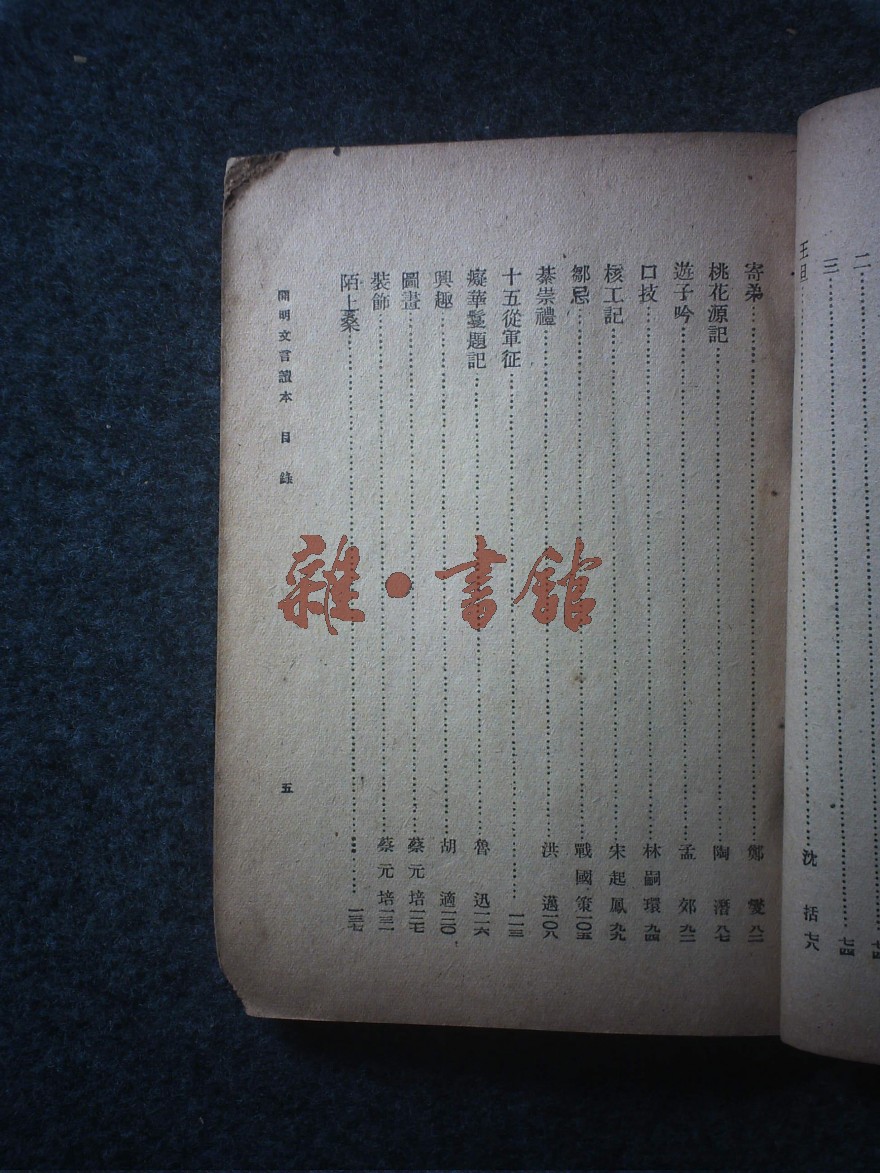 二……七四
三……七四
王旦……沈括七八
寄弟……鄭燮八二
桃花源記……陶潛八七
遊子吟……孟郊九二
口技……林嗣環九四
核工記……宋起鳳九九
鄒忌……戰國策一〇五
綦崇禮……洪邁一〇八
十五從軍征……一一三
癡華鬘題記……魯迅一一六
興趣……胡適一二〇
圖畫……蔡元培一二七
裝飾……蔡元培一三二
陌上桑……一三七
開明文言讀本 目錄 五
雜·書館